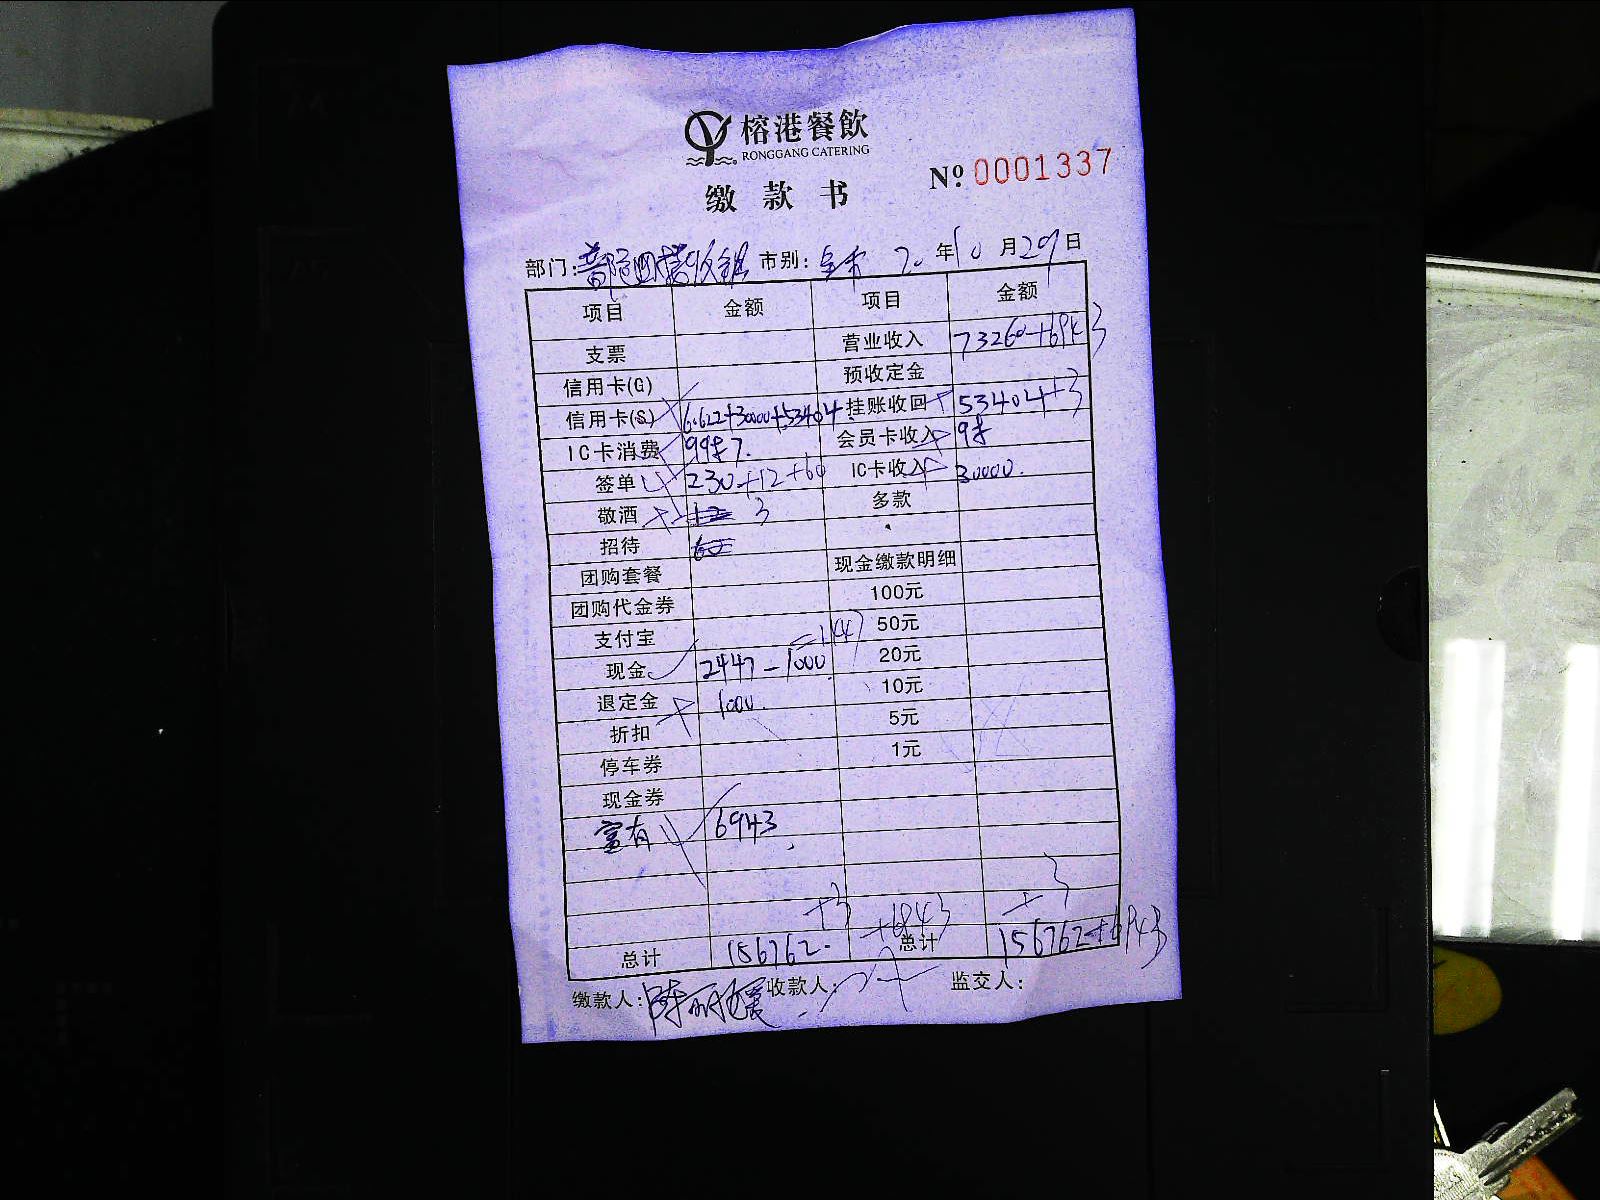 榕港餐飲
RONGGANG CATERING
缴款书
Nº 0001337
部门: 市别: 年10月29日
项目 金额 项目 金额
支票 营业收入 73260+6943
信用卡(G) 预收定金
信用卡(S) +30000+53404 挂账收回 53404+3
IC卡消费 会员卡收入
签单 230+12+60 IC卡收入 30000.
敬酒 3 多款
招待
团购套餐 现金缴款明细
团购代金券 100元
支付宝 50元
现金 2447-1000 20元
退定金 1000. 10元
折扣 5元
停车券 1元
现金券
富有 6943
+3 +6943 +3
总计 156762. 总计 156762+6943
缴款人: 收款人: 监交人: